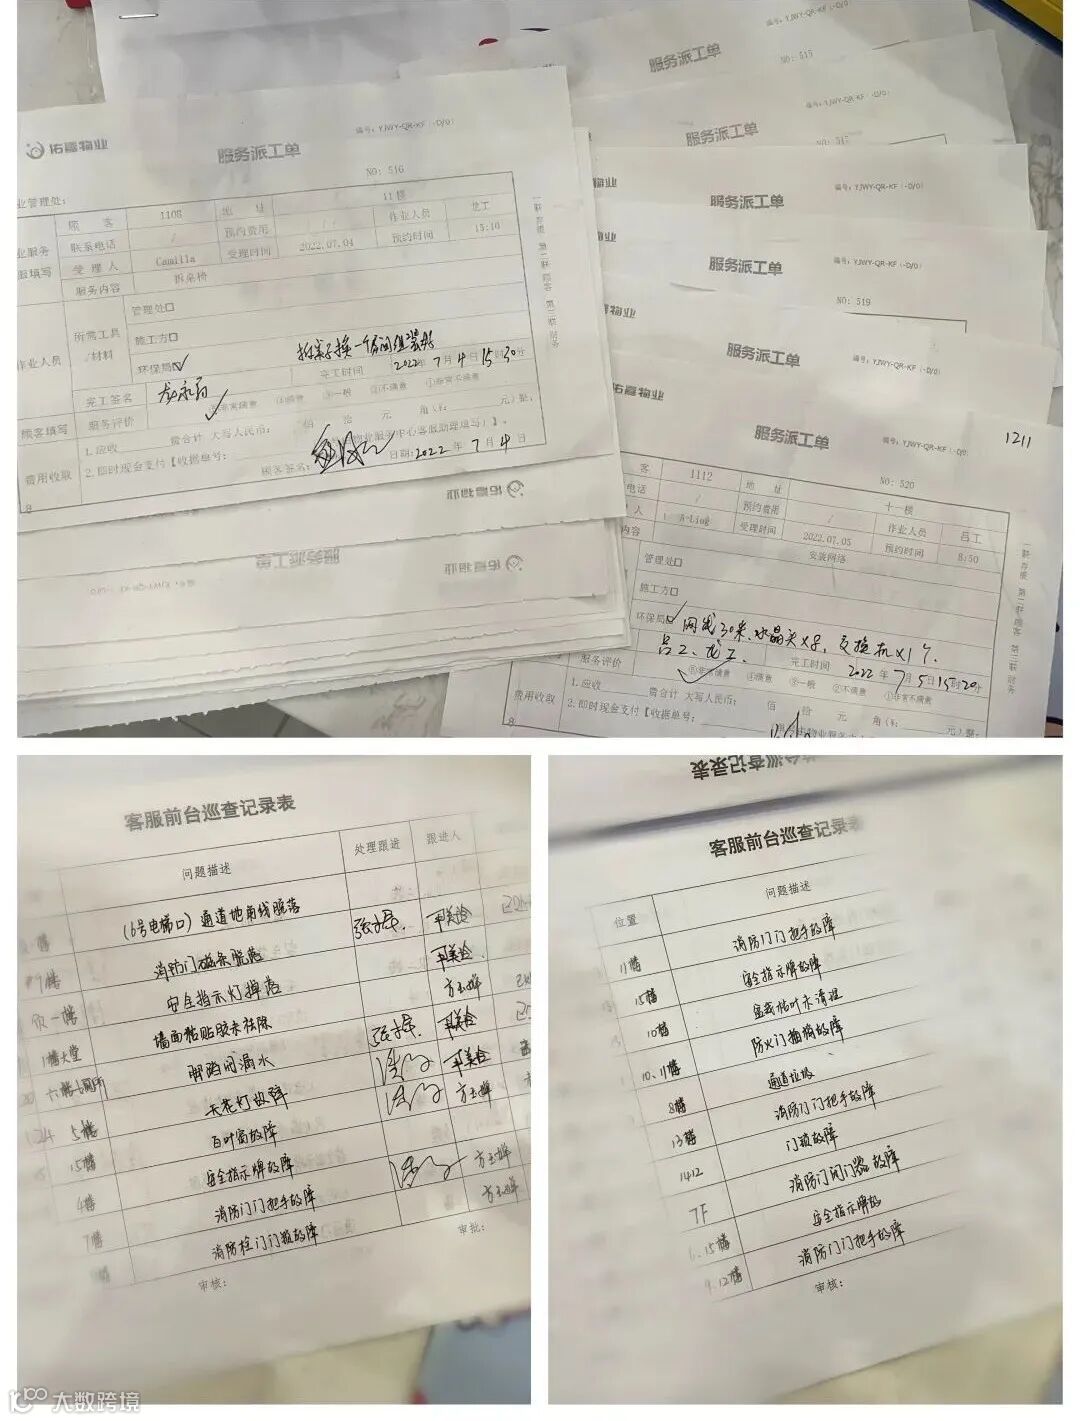 编号：YJWY-QR-KF（-D/0）
服务派工单
NO：515
编号：YJWY-QR-KF（-D/0）
服务派工单
编号：YJWY-QR-KF（-D/0）
佑嘉物业
服务派工单
NO：516
业管理处：
顾 客
1108
地 址
11楼
联系电话
/
预约费用
/
作业人员
龙工
业服务
受 理 人
Camilla
受理时间
2022.07.04
预约时间
15:10
服填写
服务内容
拆桌椅
作业人员
所需工具
/材料
管理处口
施工方口
环保局口
完工签名
完工时间
2022年7月4日15时30分
顾客填写
服务评价
⑤非常满意 ④满意 ③一般 ②不满意 ①非常不满意
费用收取
1.应收 费合计 大写人民币： 佰 拾 元 角（¥： 元）整，
2.即时现金支付【收据单号： 物业服务中心客服助理填写）】。
顾客签名：
日期：2022年7月4
8
一联存根 第二联顾客 第三联财务
佑嘉物业
服务派工单
佑嘉物业
物业
服务派工单
编号：YJWY-QR-KF（-D/0）
服务派工单
编号：YJWY-QR-KF（-D/0）
NO：519
嘉物业
服务派工单
编号：YJWY-QR-KF（-D/0）
佑嘉物业
服务派工单
编号：YJWY-QR-KF（-D/0）
1211
NO：520
客
1112
地 址
十一楼
电话
/
预约费用
/
作业人员
吕工
人
A-Ling
受理时间
2022.07.05
预约时间
8:50
内容
安装网络
管理处口
施工方口
环保局口
网线30米、水晶头x8，交换机x1个.
吕工、龙工
完工时间
2022年7月5日15时20分
服务评价
⑤非常满意 ④满意 ③一般 ②不满意 ①非常不满意
费用收取
1.应收 费合计 大写人民币： 佰 拾 元 角（¥： 元）整，
2.即时现金支付【收据单号：
8
一联存根 第二联顾客 第三联财务
客服前台巡查记录表
问题描述
处理跟进
跟进人
（6号电梯口）通道地角线脱落
消防门磁条脱落
安全指示灯掉落
方玉婵
1楼大堂
墙面粘贴胶未祛除
天花灯故障
方玉婵
5楼
百叶窗故障
15楼
安全指示牌故障
方玉婵
4楼
消防门门把手故障
方玉婵
7楼
消防栓门门锁故障
审核：
审批：
巡查记录表
客服前台巡查记录表
位置
问题描述
11楼
消防门门把手故障
15楼
安全指示牌故障
10楼
盆栽枯叶未清理
10、11楼
防火门插销故障
8楼
通道垃圾
13楼
消防门门把手故障
1412
门锁故障
7F
消防门闭门器故障
6、15楼
安全指示牌故
9、12楼
消防门门把手故障
审核：
大数跨境